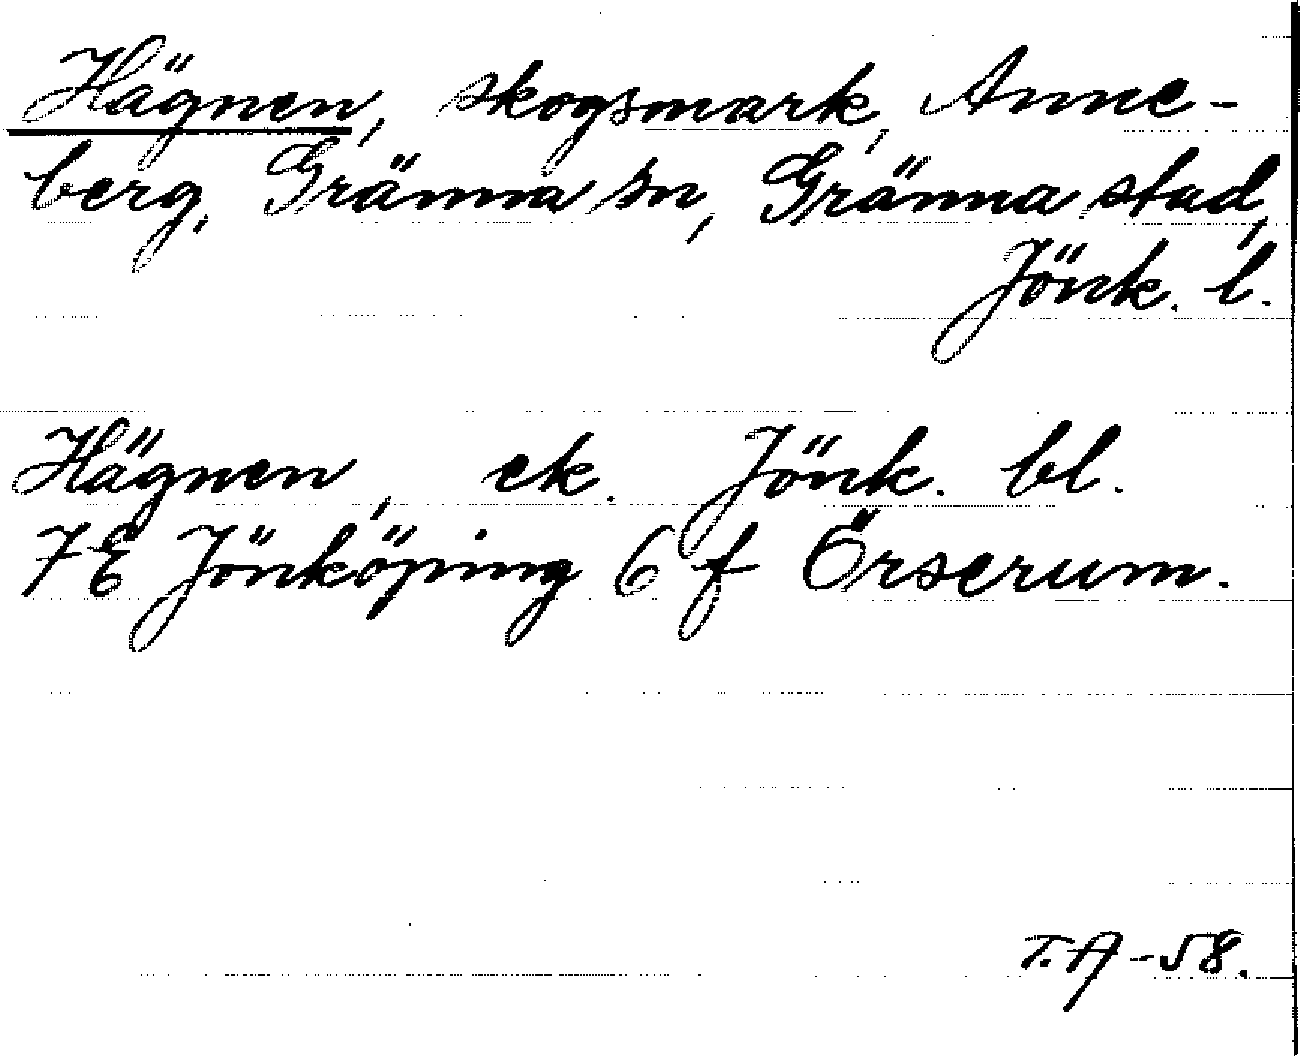 Hägnen, skogsmark, Anne-
berg, Gränna sn, Gränna stad,
Jönk. l.
Hägnen, ek. Jönk. bl.
7E Jönköping 6 f Örserum.
T.A -58.